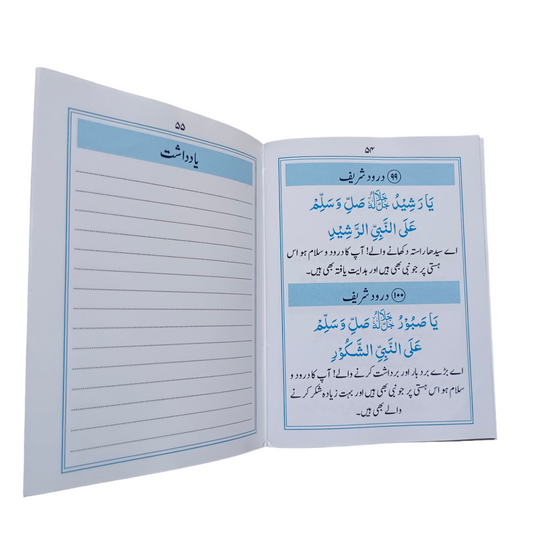 ۵۴
۹۹ درود شریف
یَا رَشِیْدُ جَلَّ جَلَالُہٗ صَلِّ وَسَلِّمْ
عَلَی النَّبِیِّ الرَّشِیْدِ
اے سیدھا راستہ دکھانے والے! آپ کا درود و سلام ہو اس
ہستی پر جو نبی بھی ہیں اور ہدایت یافتہ بھی ہیں۔
۱۰۰ درود شریف
یَا صَبُوْرُ جَلَّ جَلَالُہٗ صَلِّ وَسَلِّمْ
عَلَی النَّبِیِّ الشَّکُوْرِ
اے بڑے بردبار اور برداشت کرنے والے! آپ کا درود و
سلام ہو اس ہستی پر جو نبی بھی ہیں اور بہت زیادہ شکر کرنے
والے بھی ہیں۔
۵۵
یادداشت